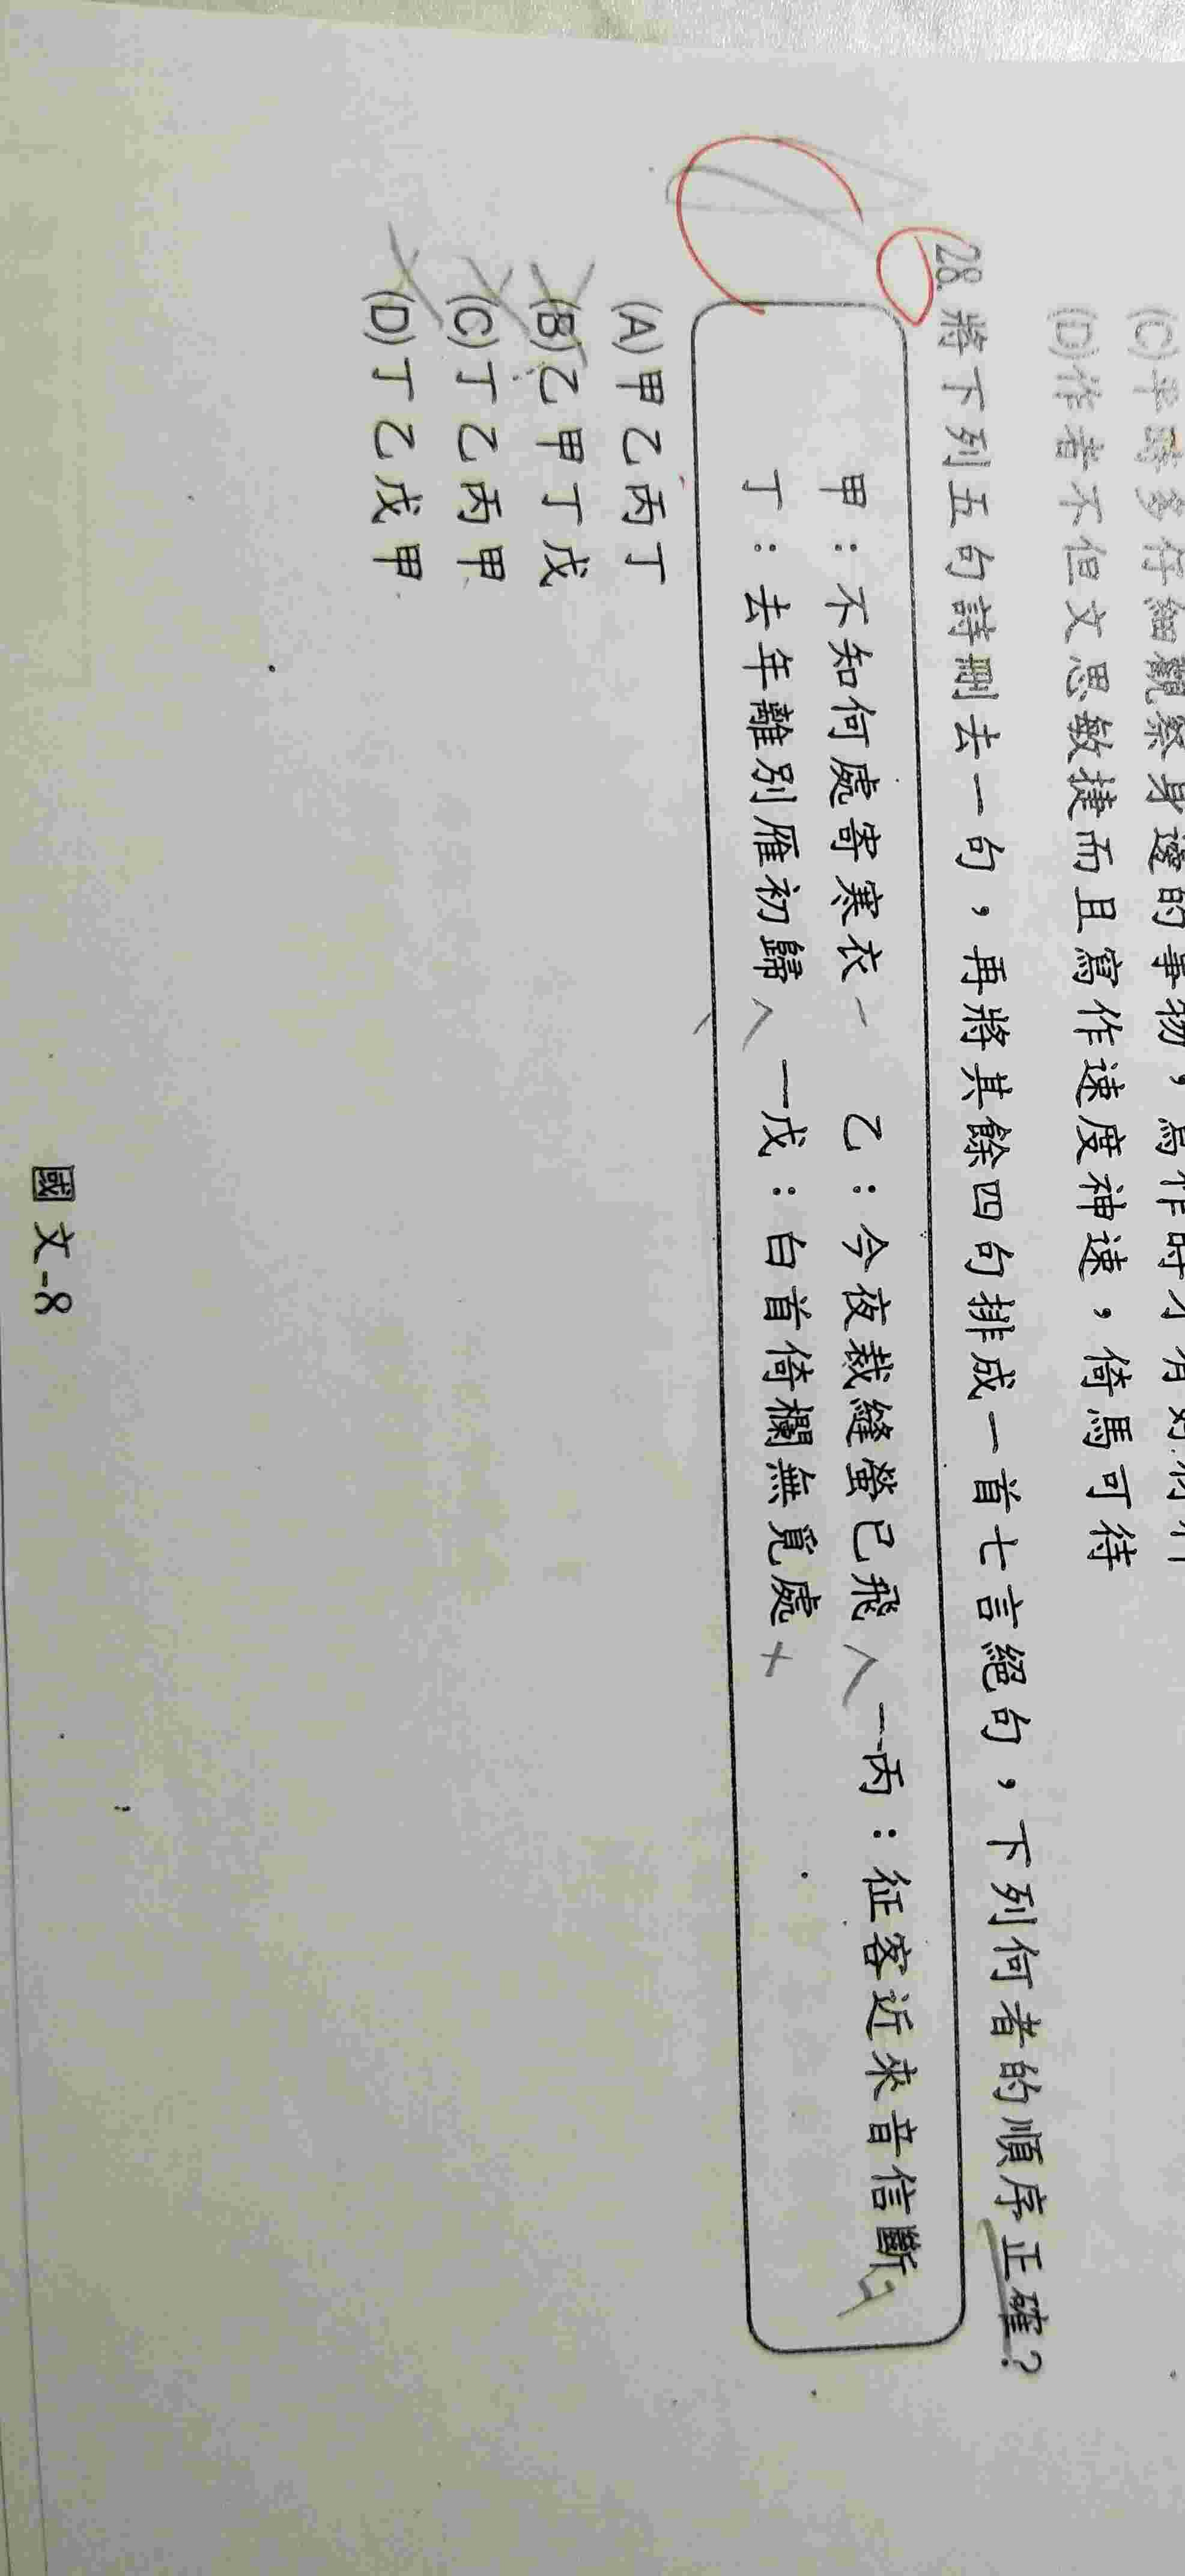 (C)平時多仔細觀察身邊的事物，寫作時才有好材料
(D)作者不但文思敏捷而且寫作速度神速，倚馬可待
28. 將下列五句詩刪去一句，再將其餘四句排成一首七言絕句，下列何者的順序正確？
甲：不知何處寄寒衣 乙：今夜裁縫螢已飛 丙：征客近來音信斷
丁：去年離別雁初歸 戊：白首倚欄無覓處
(A)甲乙丙丁
(B)乙甲丁戊
(C)丁乙丙甲
(D)丁乙戊甲
國文-8